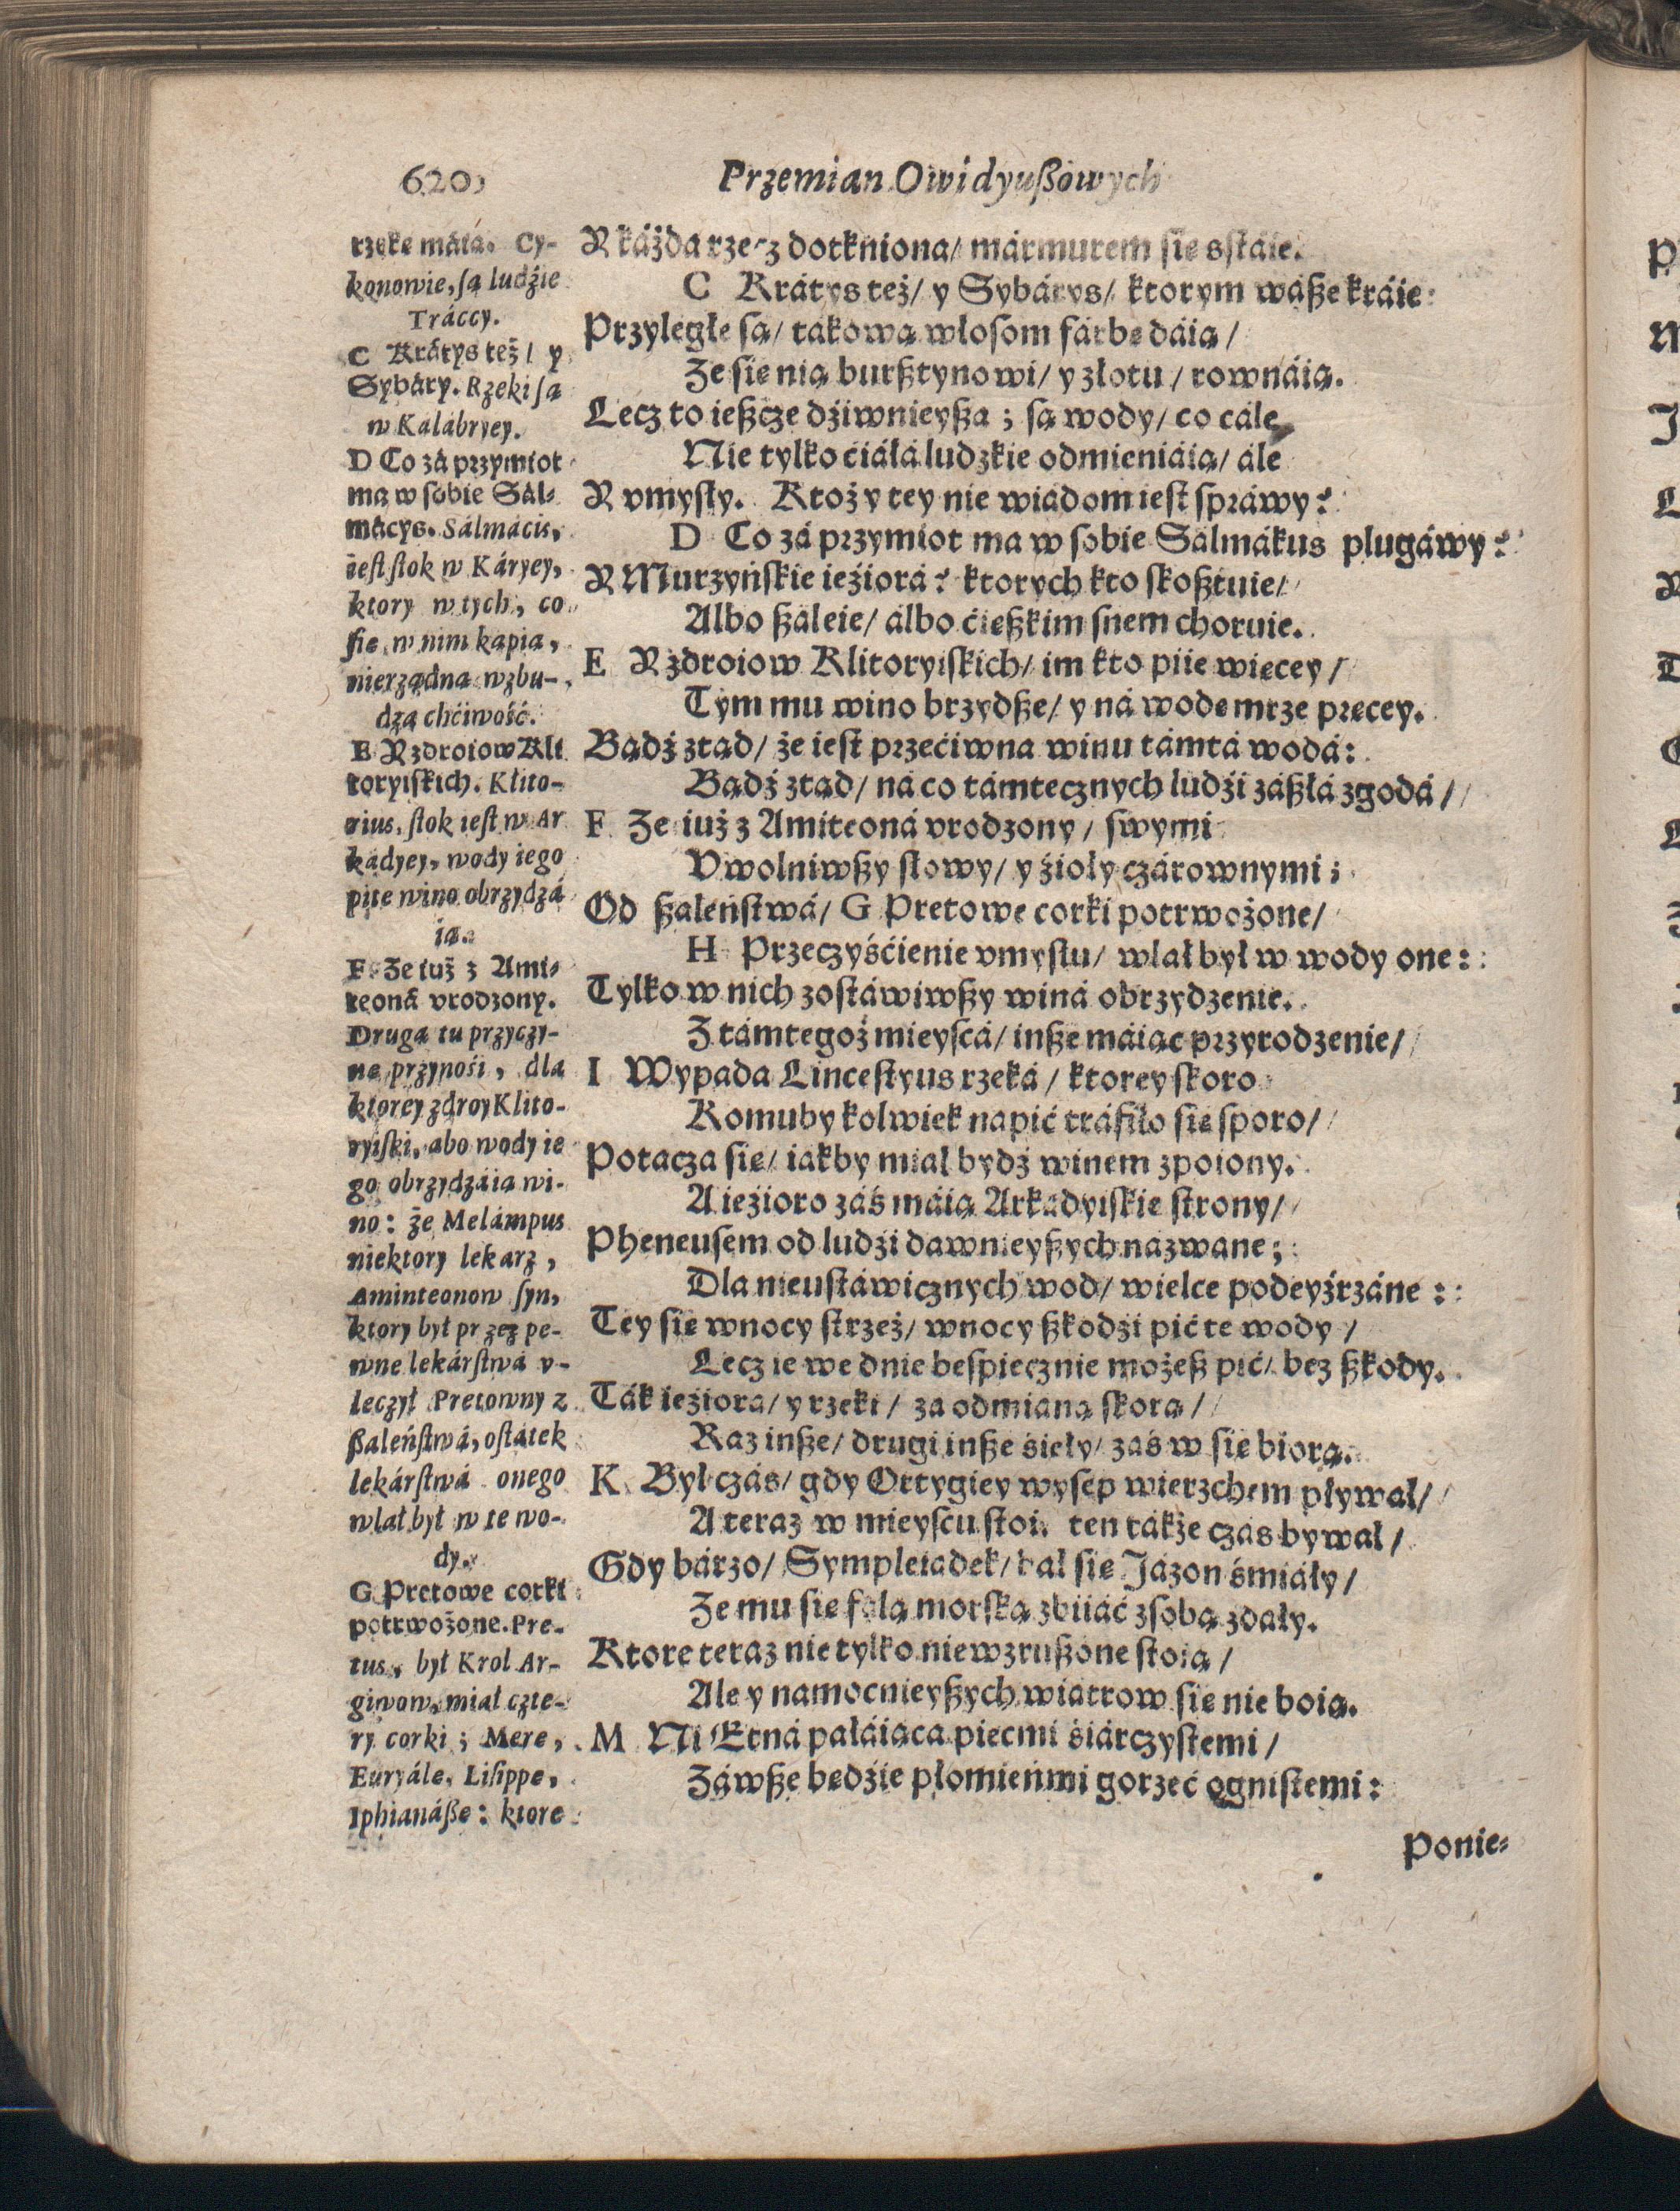 620
Przemian Owidyußowych
rzekę máią. Cy-
konowie, są ludźie
Tráccy.
C Krátys też / y
Sybáry. Rzeki są
w Kálábryey.
D Co zá przymiot
ma w sobie Sál-
mácys. Sálmácis,
iest stok w Káryey,
ktory w tych, co
się w nim kąpią,
nierządną wzbu-
dza chćiwość.
E Y zdroiow Kli
toryiskich. Klito-
rius, stok iest w Ar
kádyey, wody iego
pite wino obrzydzá
ią.
F Że iuż z Ami-
teoná vrodzony.
Drugą tu przyczy-
nę przynośi, dla
ktorey zdroy Klito-
ryiski, abo wody ie
go obrzydzáią wi-
no: że Melámpus
niektory lekarz,
Aminteonow syn,
ktory był przez pe-
wne lekárstwá v-
leczył Pretowny z
ßaleństwá, ostátek
lekárstwá onego
wlał był w te wo-
dy.
G Pretowe corki
potrwożone. Pre-
tus, był Krol Ar-
giwow, miał czte-
ry corki; Mere,
Euryále, Lisippe,
Iphianáße: ktore
Y káżda rzecz dotkniona / mármurem się sstáie.
C Krátys też / y Sybárys / ktorym wáße kráie
Przyległe są / tákową włosom fárbę dáią /
Że się nią burßtynowi / y złotu / rownáią.
Lecz to ießcze dźiwnieyßa; są wody / co cále
Nie tylko ćiáłá ludzkie odmieniáią / ále
Y vmysły. Ktoż y tey nie wiadom iest spráwy?
D Co zá przymiot ma w sobie Sálmákus plugáwy?
Y Murzyńskie ieźiorá? ktorych kto skoßtuie /
Albo ßáleie / álbo ćięßkim snem choruie.
E Y zdroiow Klitoryiskich / im kto piie więcey /
Tym mu wino brzydße / y ná wodę mrze pręcey.
Bądź ztąd / że iest przećiwna winu támtá wodá:
Bądź ztąd / ná co támtecznych ludźi záßłá zgodá /
F Że iuż z Amiteoná vrodzony / swymi
Vwolniwßy słowy / y źioły czárownymi;
Od ßaleństwá / G Pretowe corki potrwożone /
H Przeczyśćienie vmysłu / wlał był w wody one:
Tylko w nich zostáwiwßy winá obrzydzenie.
Z támtegoż mieyscá / inße máiąc przyrodzenie /
I Wypada Lincestyus rzeká / ktorey skoro
Komuby kolwiek napić tráfiło się sporo /
Potacza się / iákby miał bydź winem zpoiony.
A ieźioro záś máią Arkádyiskie strony /
Pheneusem od ludźi dawnieyßych názwane;
Dla nieustáwicznych wod / wielce podeyźrzáne:
Tey się w nocy strzeż / w nocy ßkodźi pić te wody /
Lecz ie we dnie bespiecznie możeß pić / bez ßkody.
Ták ieźiora / y rzeki / za odmianą skorą /
Raz inße / drugi inße śiły / záś w się biorą.
K Był czás / gdy Ortygiey wysep wierzchem pływał /
A teraz w mieyscu stoi. ten tákże czás bywał /
Gdy bárzo / Sympleiadek / bał się Jázon śmiáły /
Że mu się falą morską zbiiáć z sobą zdáły.
Ktore teraz nie tylko niewzrußone stoią /
Ale y namocnieyßych wiátrow się nie boią.
M Ni Etná páłáiąca piecmi śiárczystemi /
Záwße będźie płomieńmi gorzeć ognistemi:
Ponie-